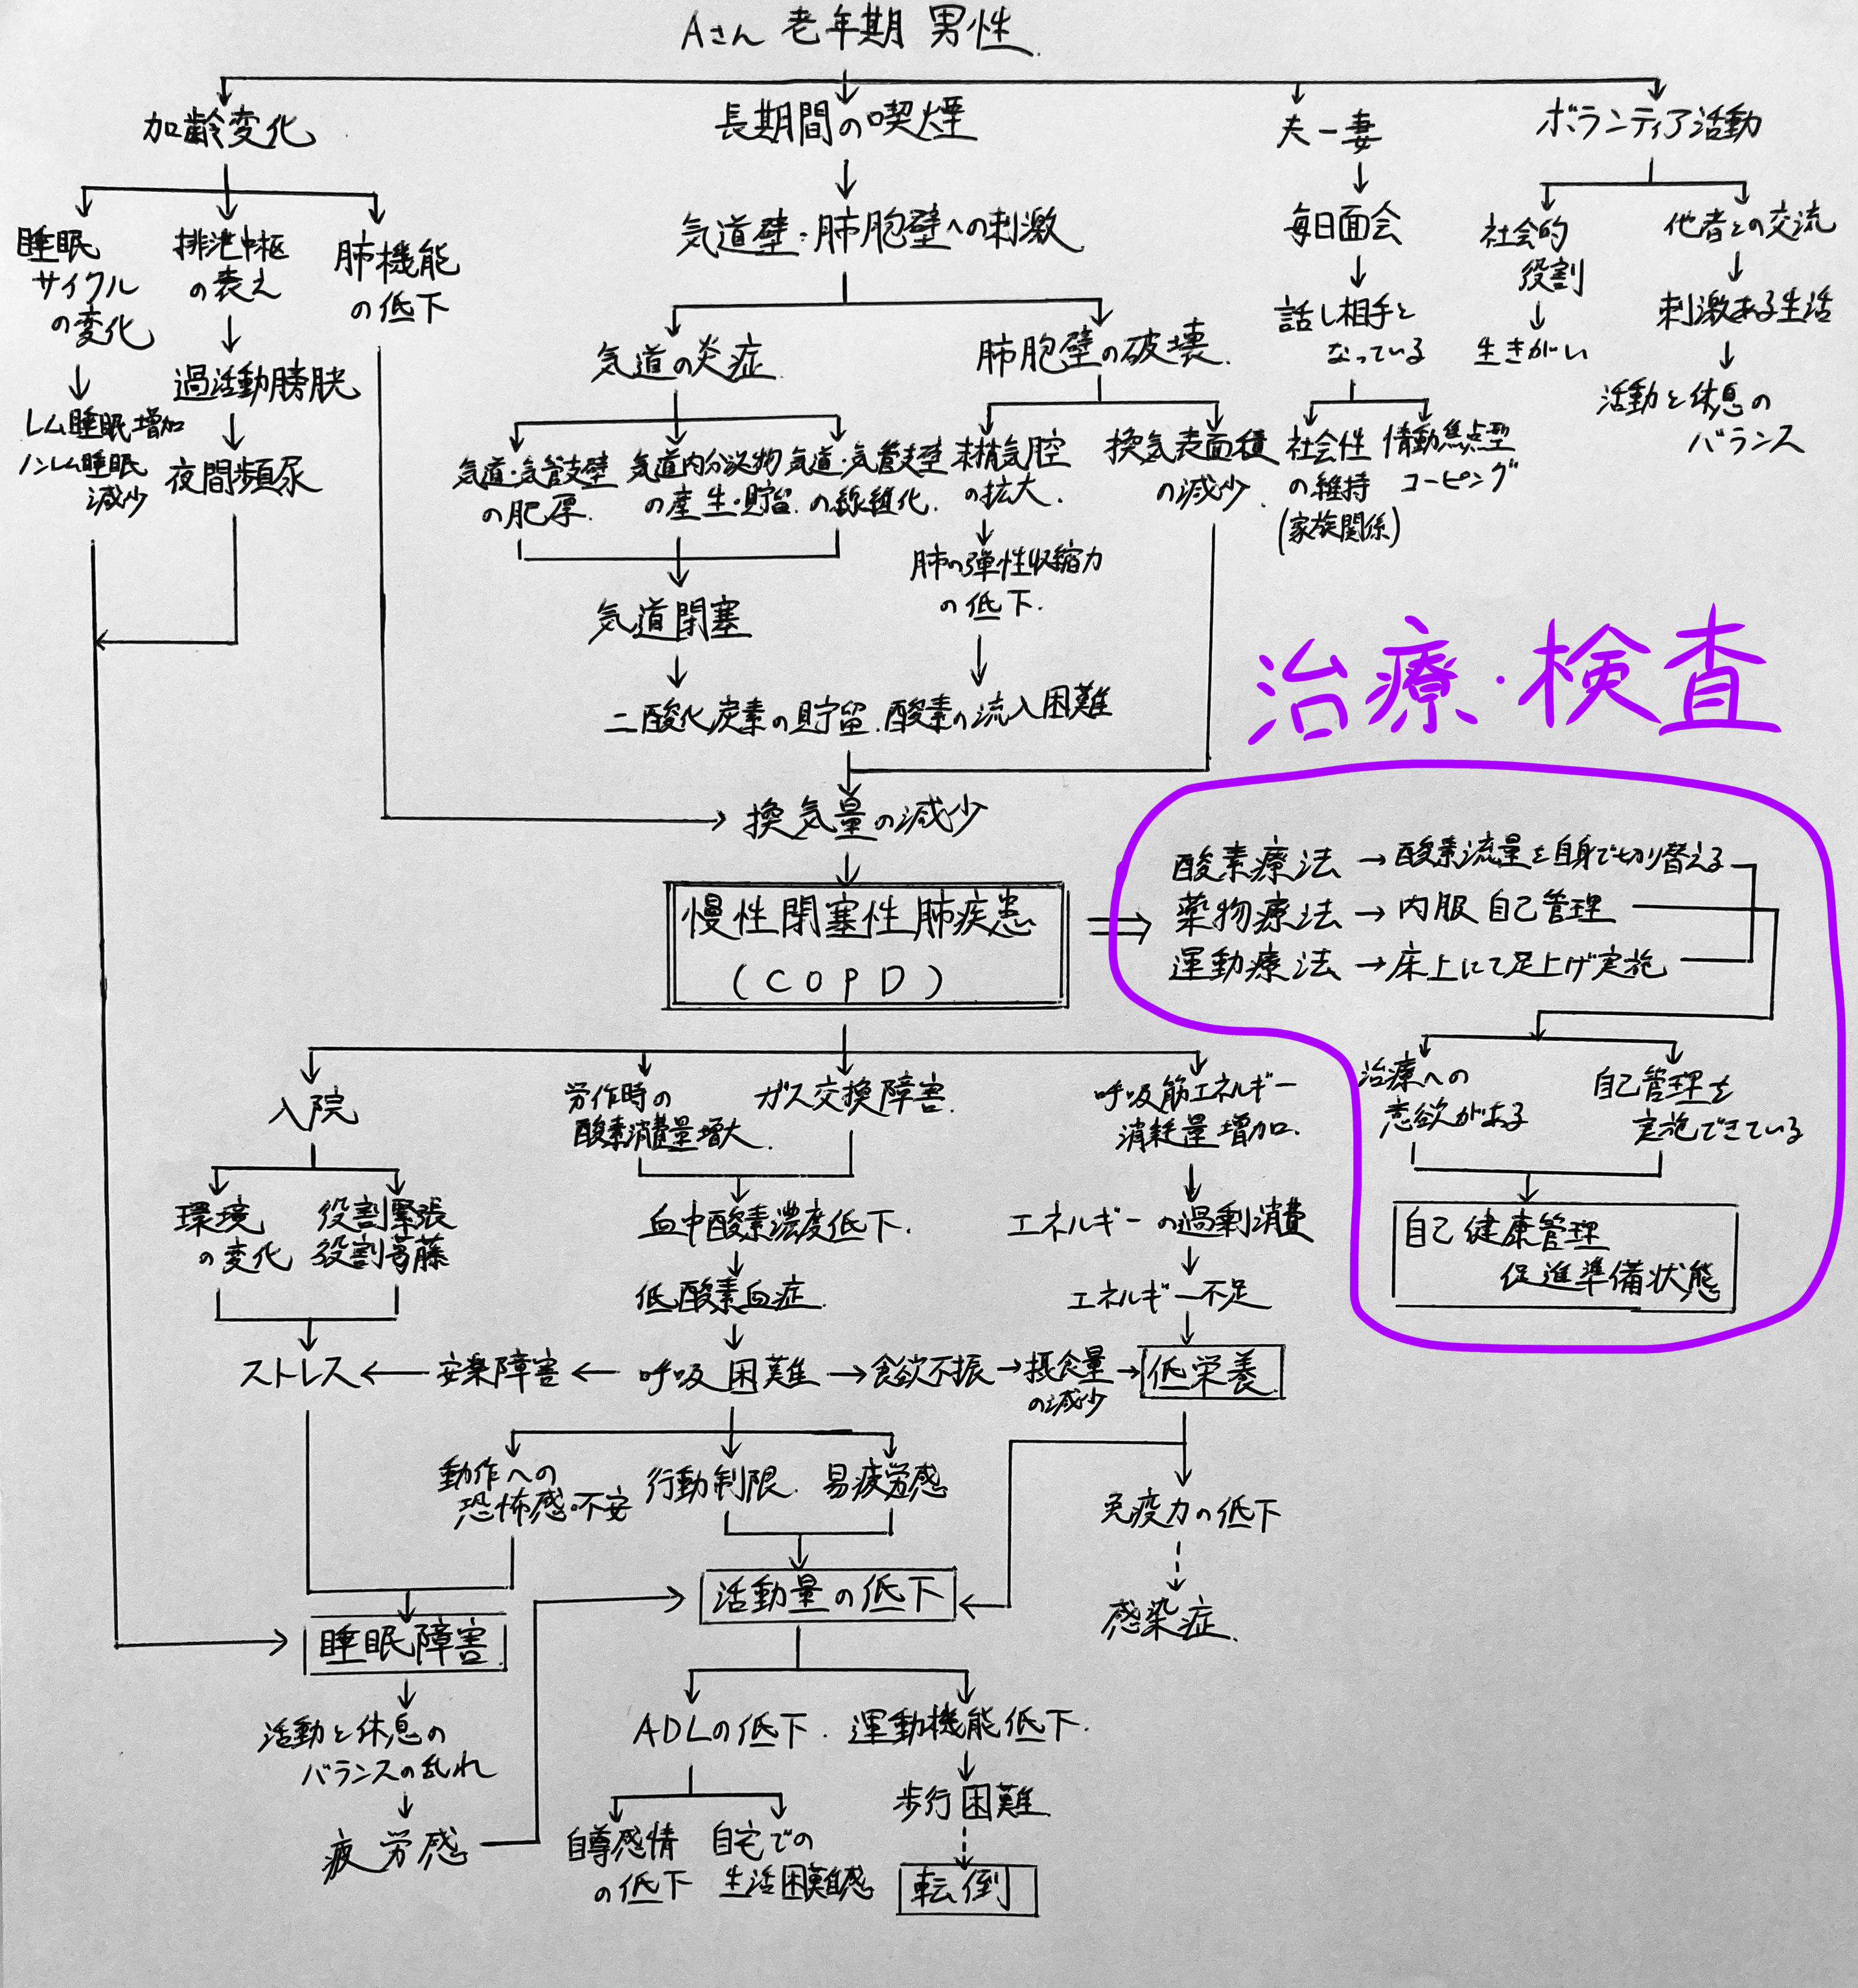 Aさん 老年期 男性.
加齢変化
長期間の喫煙
夫ー妻
ボランティア活動
睡眠
サイクル
の変化
排泄中枢
の衰え
肺機能
の低下
気道壁・肺胞壁への刺激
毎日面会
社会的
役割
他者との交流
レム睡眠増加
ノンレム睡眠
減少
過活動膀胱
夜間頻尿
気道の炎症
肺胞壁の破壊.
話し相手と
なっている
生きがい
刺激ある生活
活動と休息の
バランス
気道・気管支壁
の肥厚.
気道内分泌物
の産生・貯留.
気道・気管支壁
の線維化.
末梢気腔
の拡大.
換気表面積
の減少.
社会性
の維持
(家族関係)
情動焦点型
コーピング
気道閉塞
肺の弾性収縮力
の低下.
二酸化炭素の貯留.酸素の流入困難
換気量の減少
治療・検査
慢性閉塞性肺疾患
(COPD)
酸素療法→酸素流量を自身で切り替える
薬物療法→内服自己管理
運動療法→床上にて足上げ実施
治療への
意欲がある
自己管理を
実施できている
自己健康管理
促進準備状態
入院
労作時の
酸素消費量増大.
ガス交換障害.
呼吸筋エネルギー
消耗量増加.
環境
の変化
役割緊張
役割葛藤
血中酸素濃度低下.
エネルギーの過剰消費
低酸素血症.
エネルギー不足
ストレス←安楽障害←呼吸困難→食欲不振→摂食量
の減少→低栄養
動作への
恐怖感・不安
行動制限.
易疲労感
免疫力の低下
感染症.
活動量の低下
睡眠障害
活動と休息の
バランスの乱れ
疲労感
ADLの低下.運動機能低下.
歩行困難.
自尊感情
の低下
自宅での
生活困難感
転倒